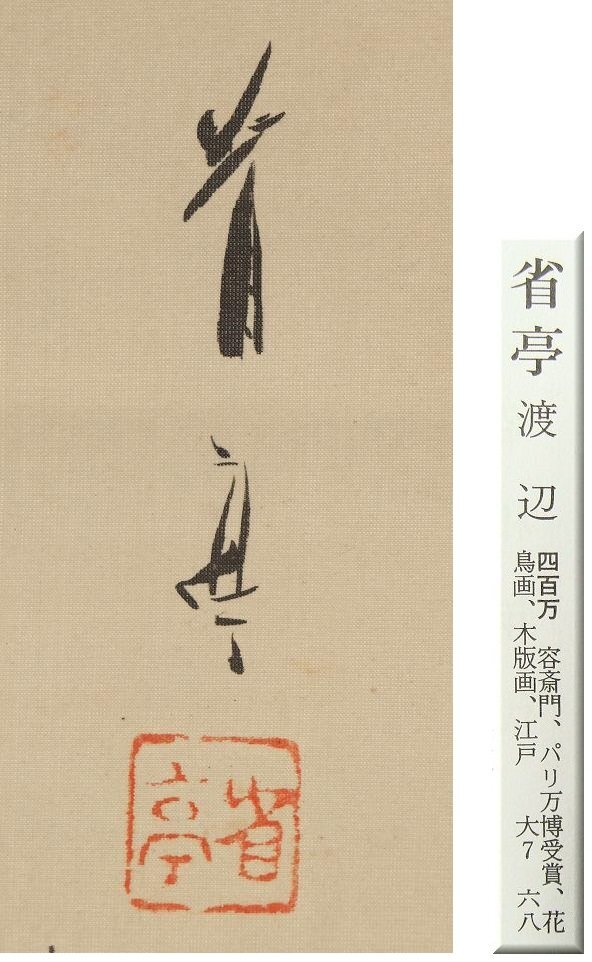 省亭
省亭
省亭 渡辺 四百万 容斎門、パリ万博受賞、花
鳥画、木版画、江戸 大7 六八